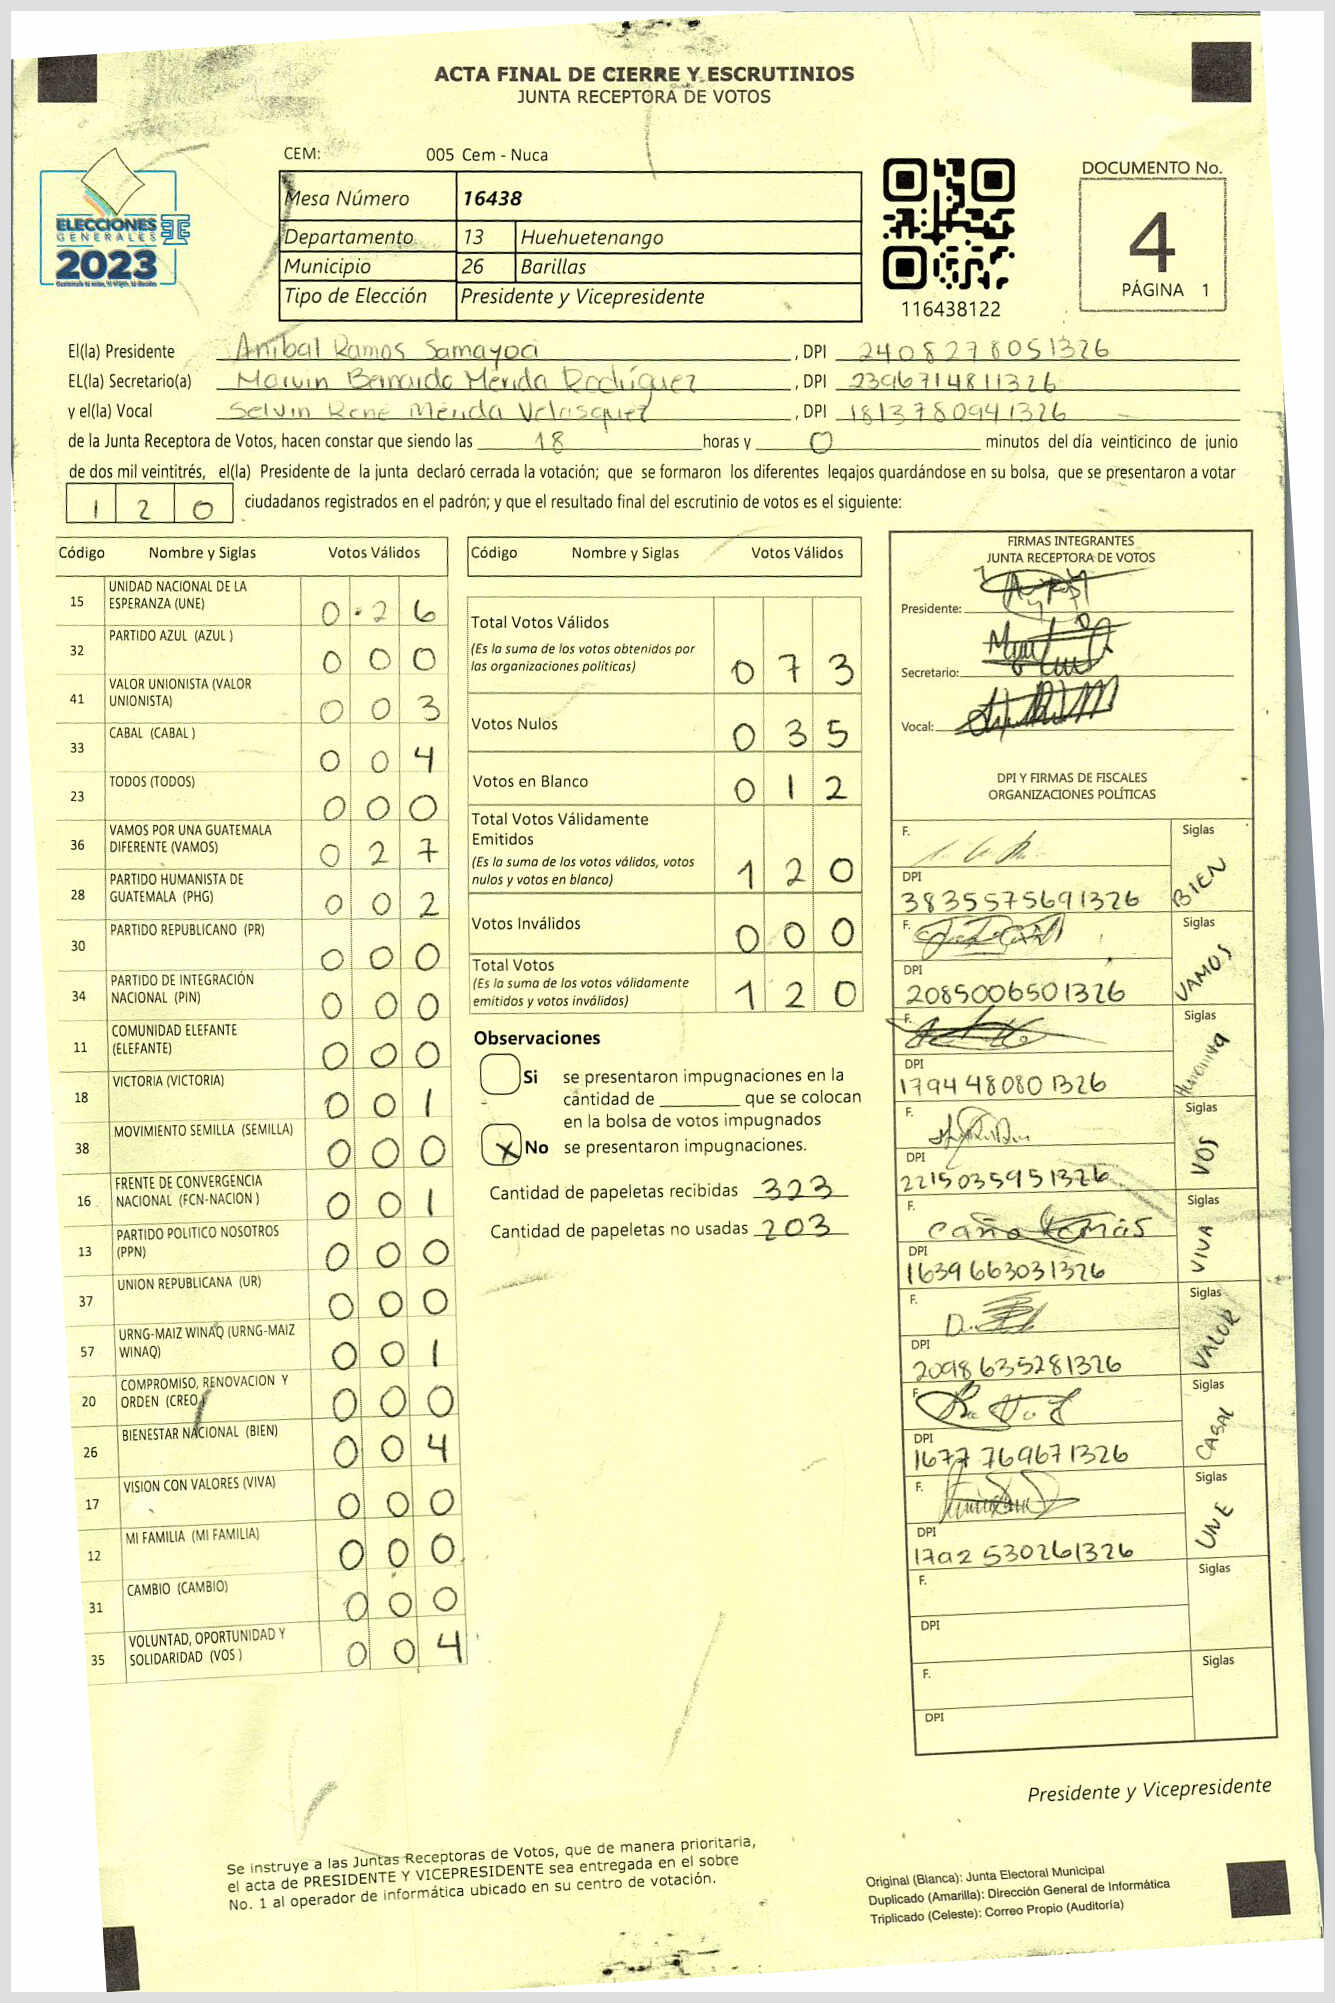 ACTA FINAL DE CIERRE Y ESCRUTINIOS
JUNTA RECEPTORA DE VOTOS
CEM: 005 Cem - Nuca
Mesa Número 16438
Departamento 13 Huehuetenango
Municipio 26 Barillas
Tipo de Elección Presidente y Vicepresidente
ELECCIONES
GENERALES
2023
116438122
DOCUMENTO No.
4
PÁGINA 1
El(la) Presidente Anibal Ramos Samayoa , DPI 2408278051326
EL(la) Secretario(a) Marvin Bernardo Mérida Rodríguez , DPI 2396714811326
y el(la) Vocal Selvin René Mérida Velásquez , DPI 1813780941326
de la Junta Receptora de Votos, hacen constar que siendo las 18 horas y 0 minutos del día veinticinco de junio
de dos mil veintitrés, el(la) Presidente de la junta declaró cerrada la votación; que se formaron los diferentes legajos guardándose en su bolsa, que se presentaron a votar
120 ciudadanos registrados en el padrón; y que el resultado final del escrutinio de votos es el siguiente:
Código Nombre y Siglas Votos Válidos
15 UNIDAD NACIONAL DE LA ESPERANZA (UNE) 0 26
32 PARTIDO AZUL (AZUL ) 000
41 VALOR UNIONISTA (VALOR UNIONISTA) 003
33 CABAL (CABAL ) 004
23 TODOS (TODOS) 000
36 VAMOS POR UNA GUATEMALA DIFERENTE (VAMOS) 027
28 PARTIDO HUMANISTA DE GUATEMALA (PHG) 002
30 PARTIDO REPUBLICANO (PR) 000
34 PARTIDO DE INTEGRACIÓN NACIONAL (PIN) 000
11 COMUNIDAD ELEFANTE (ELEFANTE) 000
18 VICTORIA (VICTORIA) 001
38 MOVIMIENTO SEMILLA (SEMILLA) 000
16 FRENTE DE CONVERGENCIA NACIONAL (FCN-NACION ) 001
13 PARTIDO POLITICO NOSOTROS (PPN) 000
37 UNION REPUBLICANA (UR) 000
57 URNG-MAIZ WINAQ (URNG-MAIZ WINAQ) 001
20 COMPROMISO, RENOVACION Y ORDEN (CREO) 000
26 BIENESTAR NACIONAL (BIEN) 004
17 VISION CON VALORES (VIVA) 000
12 MI FAMILIA (MI FAMILIA) 000
31 CAMBIO (CAMBIO) 000
35 VOLUNTAD, OPORTUNIDAD Y SOLIDARIDAD (VOS ) 004
Código Nombre y Siglas Votos Válidos
Total Votos Válidos 073
(Es la suma de los votos obtenidos por
las organizaciones políticas)
Votos Nulos 035
Votos en Blanco 012
Total Votos Válidamente
Emitidos 120
(Es la suma de los votos válidos, votos
nulos y votos en blanco)
Votos Inválidos 000
Total Votos 120
(Es la suma de los votos válidamente
emitidos y votos inválidos)
Observaciones
Si se presentaron impugnaciones en la
cantidad de ________ que se colocan
en la bolsa de votos impugnados
X No se presentaron impugnaciones.
Cantidad de papeletas recibidas 323
Cantidad de papeletas no usadas 203
FIRMAS INTEGRANTES
JUNTA RECEPTORA DE VOTOS
Presidente:
Secretario:
Vocal:
DPI Y FIRMAS DE FISCALES
ORGANIZACIONES POLÍTICAS
F. Siglas BIEN
DPI 3835575691326
F. Siglas VAMOS
DPI 2085006501326
F. Siglas Humanista
DPI 1794480801326
F. Siglas VOS
DPI 2215035951326
F. Siglas VIVA
DPI 1639663031326
F. Siglas VALOR
DPI 2098635281326
F. Siglas CABAL
DPI 1677769671326
F. Siglas UNE
DPI 1792530261326
F. Siglas
DPI
F. Siglas
DPI
Presidente y Vicepresidente
Se instruye a las Juntas Receptoras de Votos, que de manera prioritaria,
el acta de PRESIDENTE Y VICEPRESIDENTE sea entregada en el sobre
No. 1 al operador de informática ubicado en su centro de votación.
Original (Blanca): Junta Electoral Municipal
Duplicado (Amarilla): Dirección General de Informática
Triplicado (Celeste): Correo Propio (Auditoría)